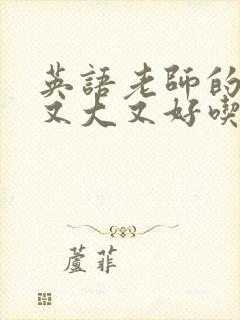 英語老師的
又大又好喫
蘆菲